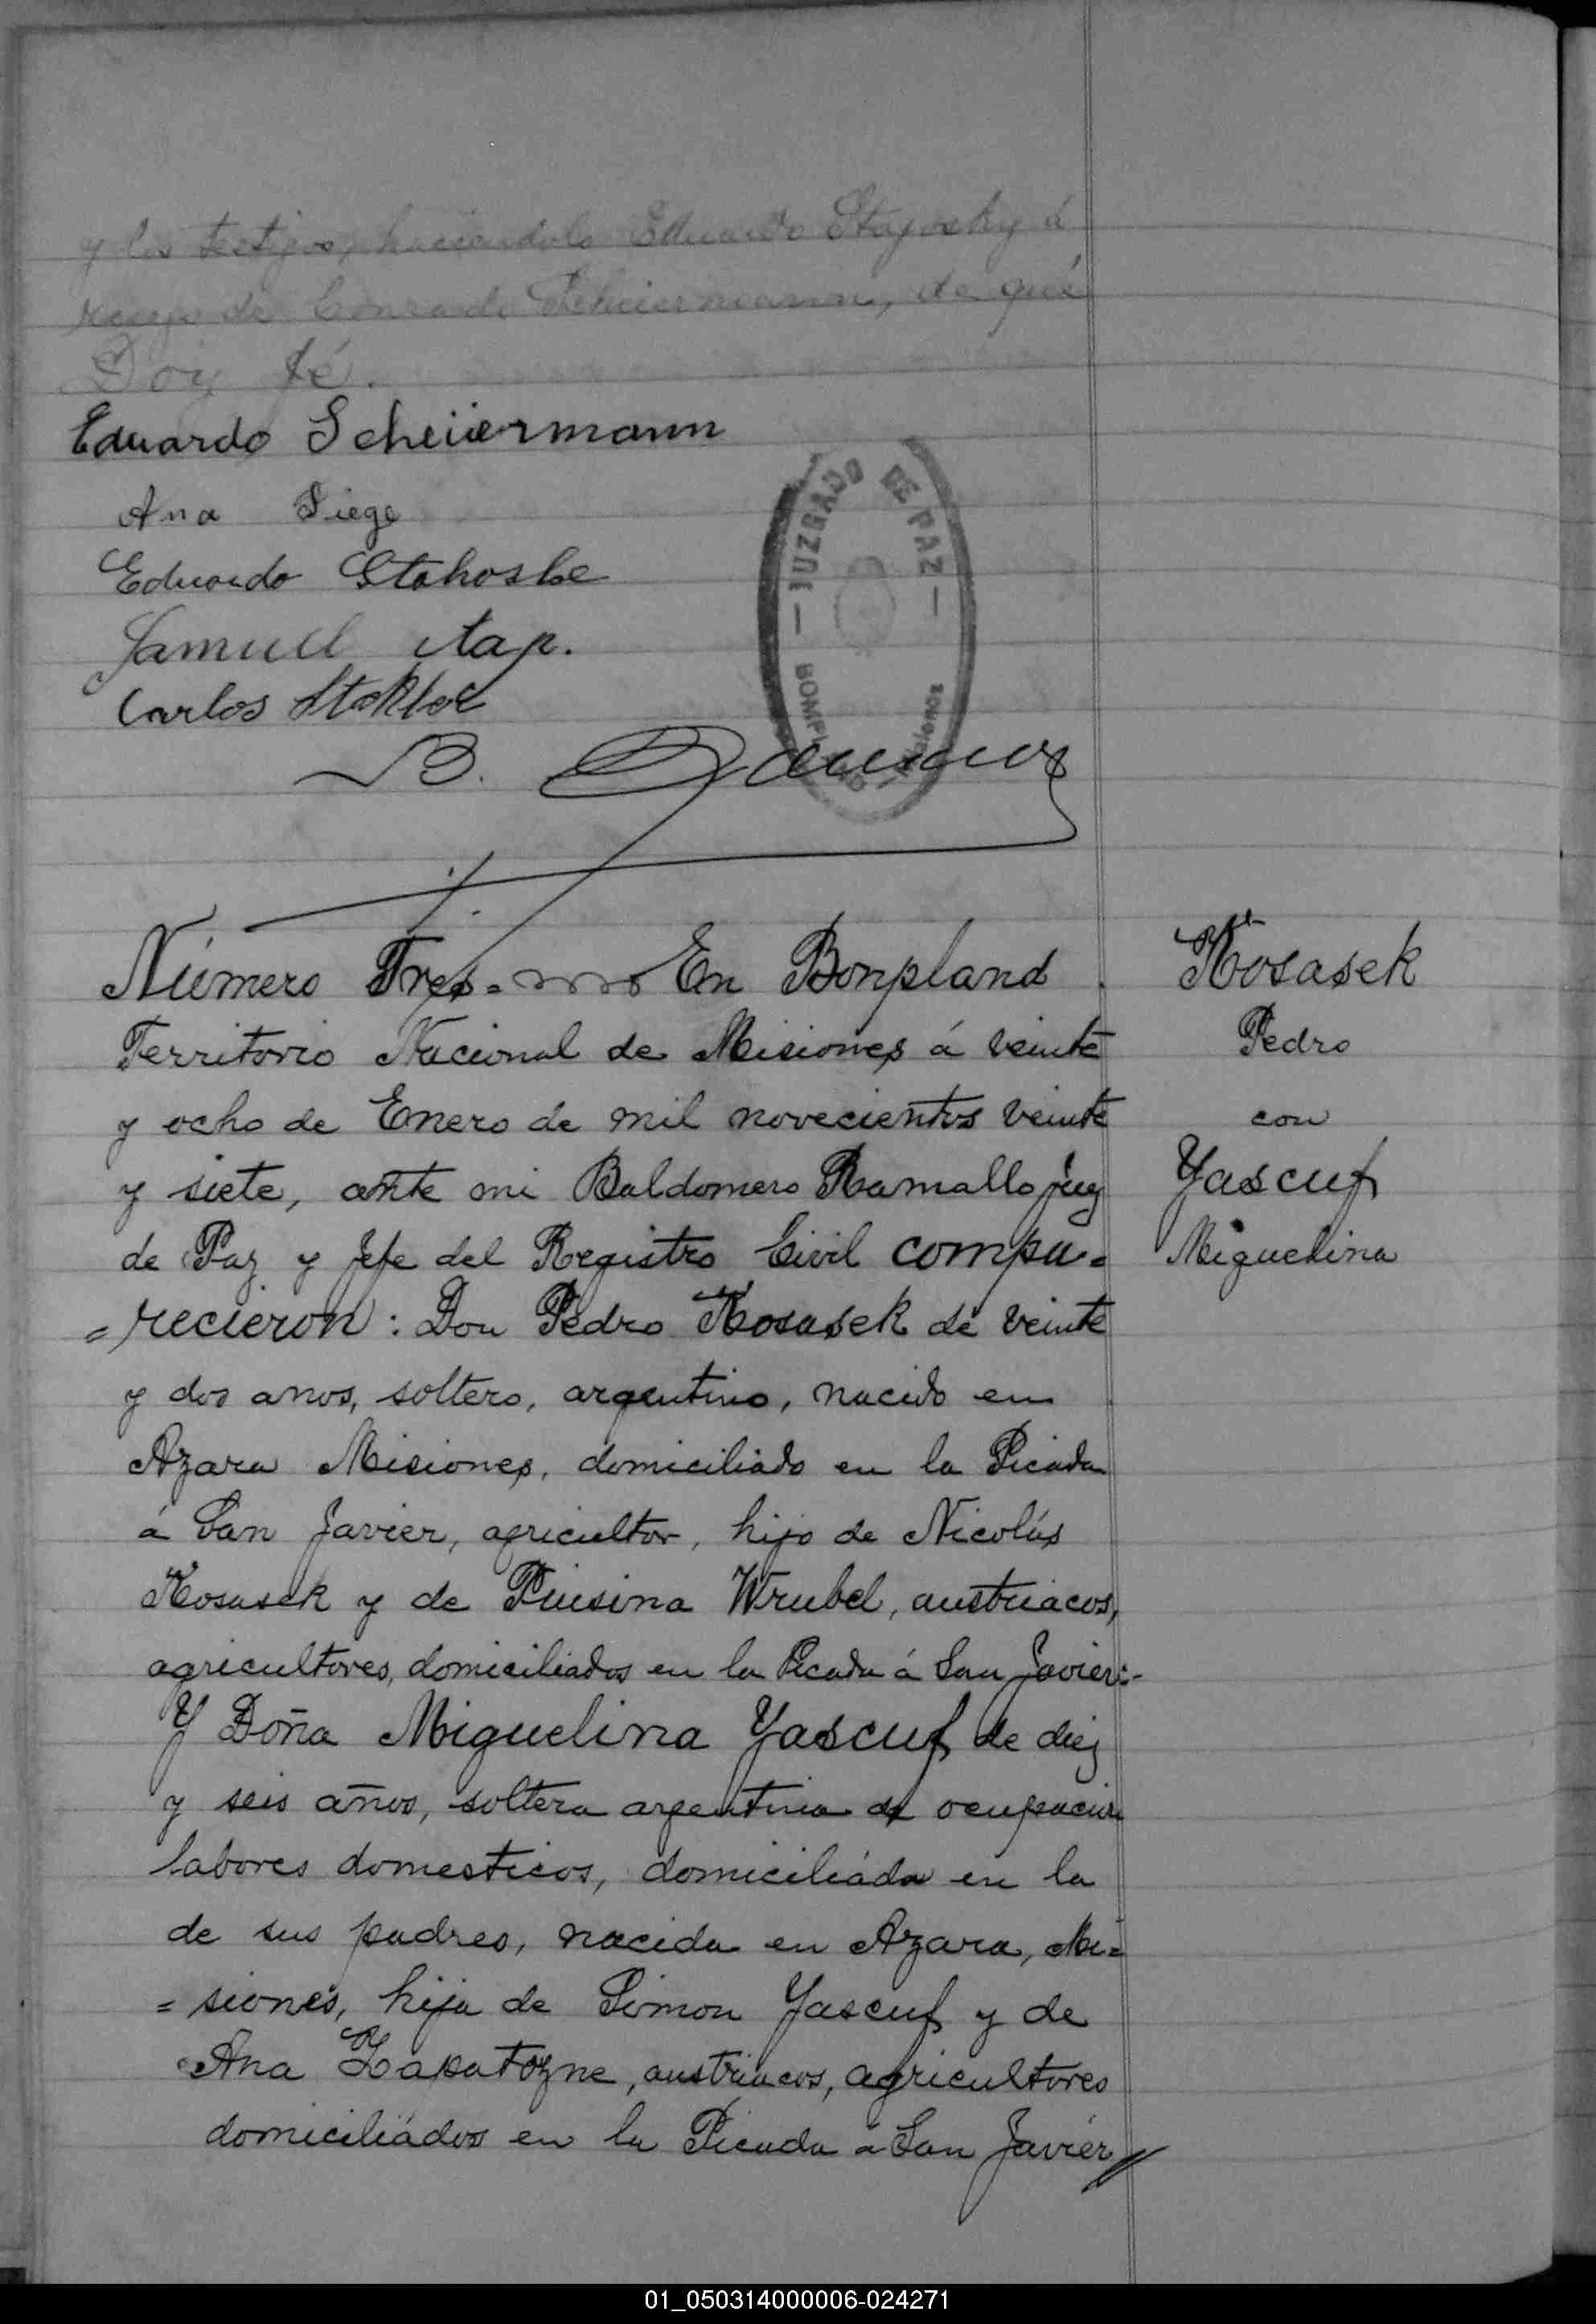 y los testigos, haciendolo Eduardo Stagosky á
ruego de Conrado Scheiermann, de qué
Doy fé.
Eduardo Scheiermann
Ana Siege
Eduardo Stahoske
Samuel
Carlos
B.
JUZGADO DE PAZ
BONPLAND Misiones
Número Tres. En Bonpland
Territorio Nacional de Misiones á veinte
y ocho de Enero de mil novecientos veinte
y siete, ante mi Baldomero Ramallo juez
de Paz y Jefe del Registro Civil compa=
=recieron: Don Pedro Kosasek de veinte
y dos anos, soltero, argentino, nacido en
Azara Misiones, domiciliado en la Picada
á San Javier, agricultor, hijo de Nicolás
Kosasek y de Wrubel, austriacos,
agricultores, domiciliados en la Picada á San Javier:-
Y Doña Miguelina Yascuf de diez
y seis años, soltera argentina de ocupación
labores domesticos, domiciliáda en la
de sus padres, nacida en Azara, Mi=
=siones, hija de Simon Yascuf y de
Ana Zapatozne, austriacos, agricultores
domiciliádos en la Picada á San Javiér//
Kosasek
Pedro
con
Yascuf
Miguelina
01_050314000006-024271